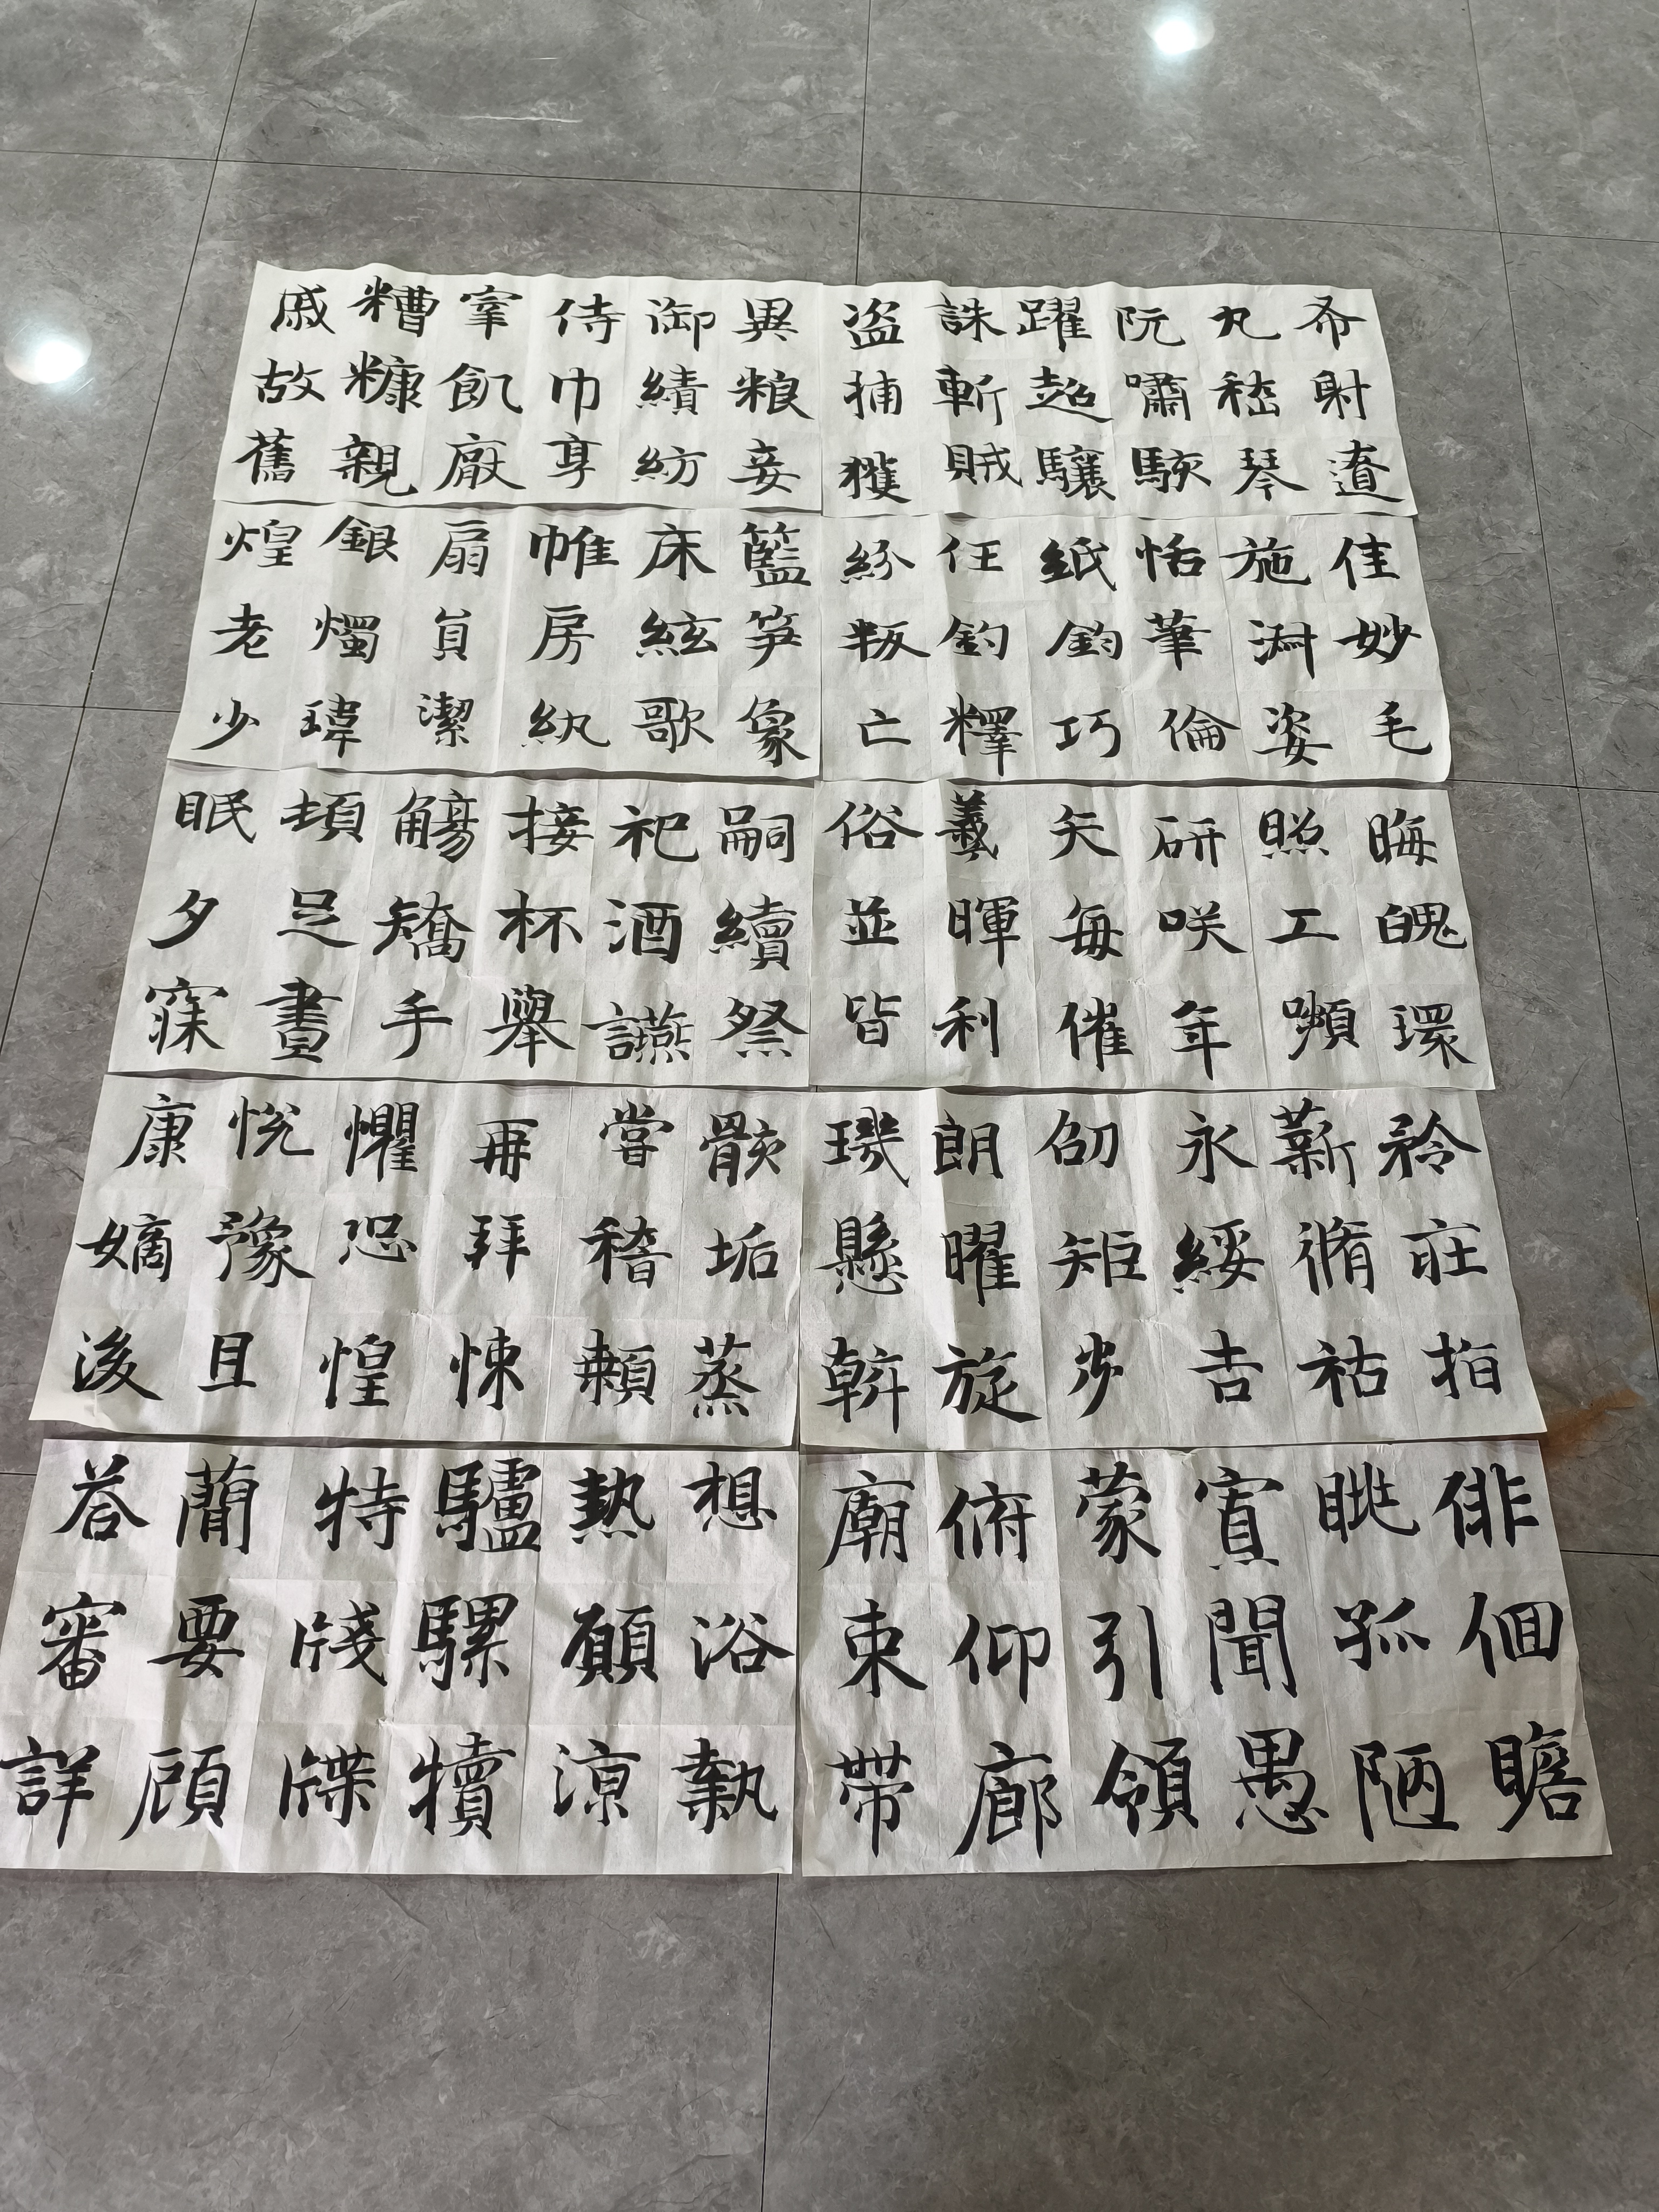 希射遼
丸嵇琴
阮嘯駭
躍超驤
誅斬賊
盜捕獲
異粮妾
御績紡
侍巾享
宰飢厰
糟糠親
戚故舊
佳妙毛
施淵姿
恬筆倫
紙鈞巧
任釣釋
紛叛亡
籃笋象
床絃歌
帷房紈
扇員潔
銀燭瑋
煌老少
晦魄環
照工嚬
研咲年
矢每催
羲暉利
俗並皆
嗣續祭
祀酒讌
接杯舉
觴矯手
頓足晝
眠夕寐
矜莊指
薪脩祜
永綏吉
劭矩步
朗曜旋
璣懸斡
骸垢蒸
嘗稽顙
再拜悚
懼恐惶
悅豫且
康嫡後
俳佪瞻
眺孤陋
寡聞愚
蒙引領
俯仰廊
廟束帶
想浴執
熱願凉
驢騾犢
特牋牒
蕳要顧
荅審詳